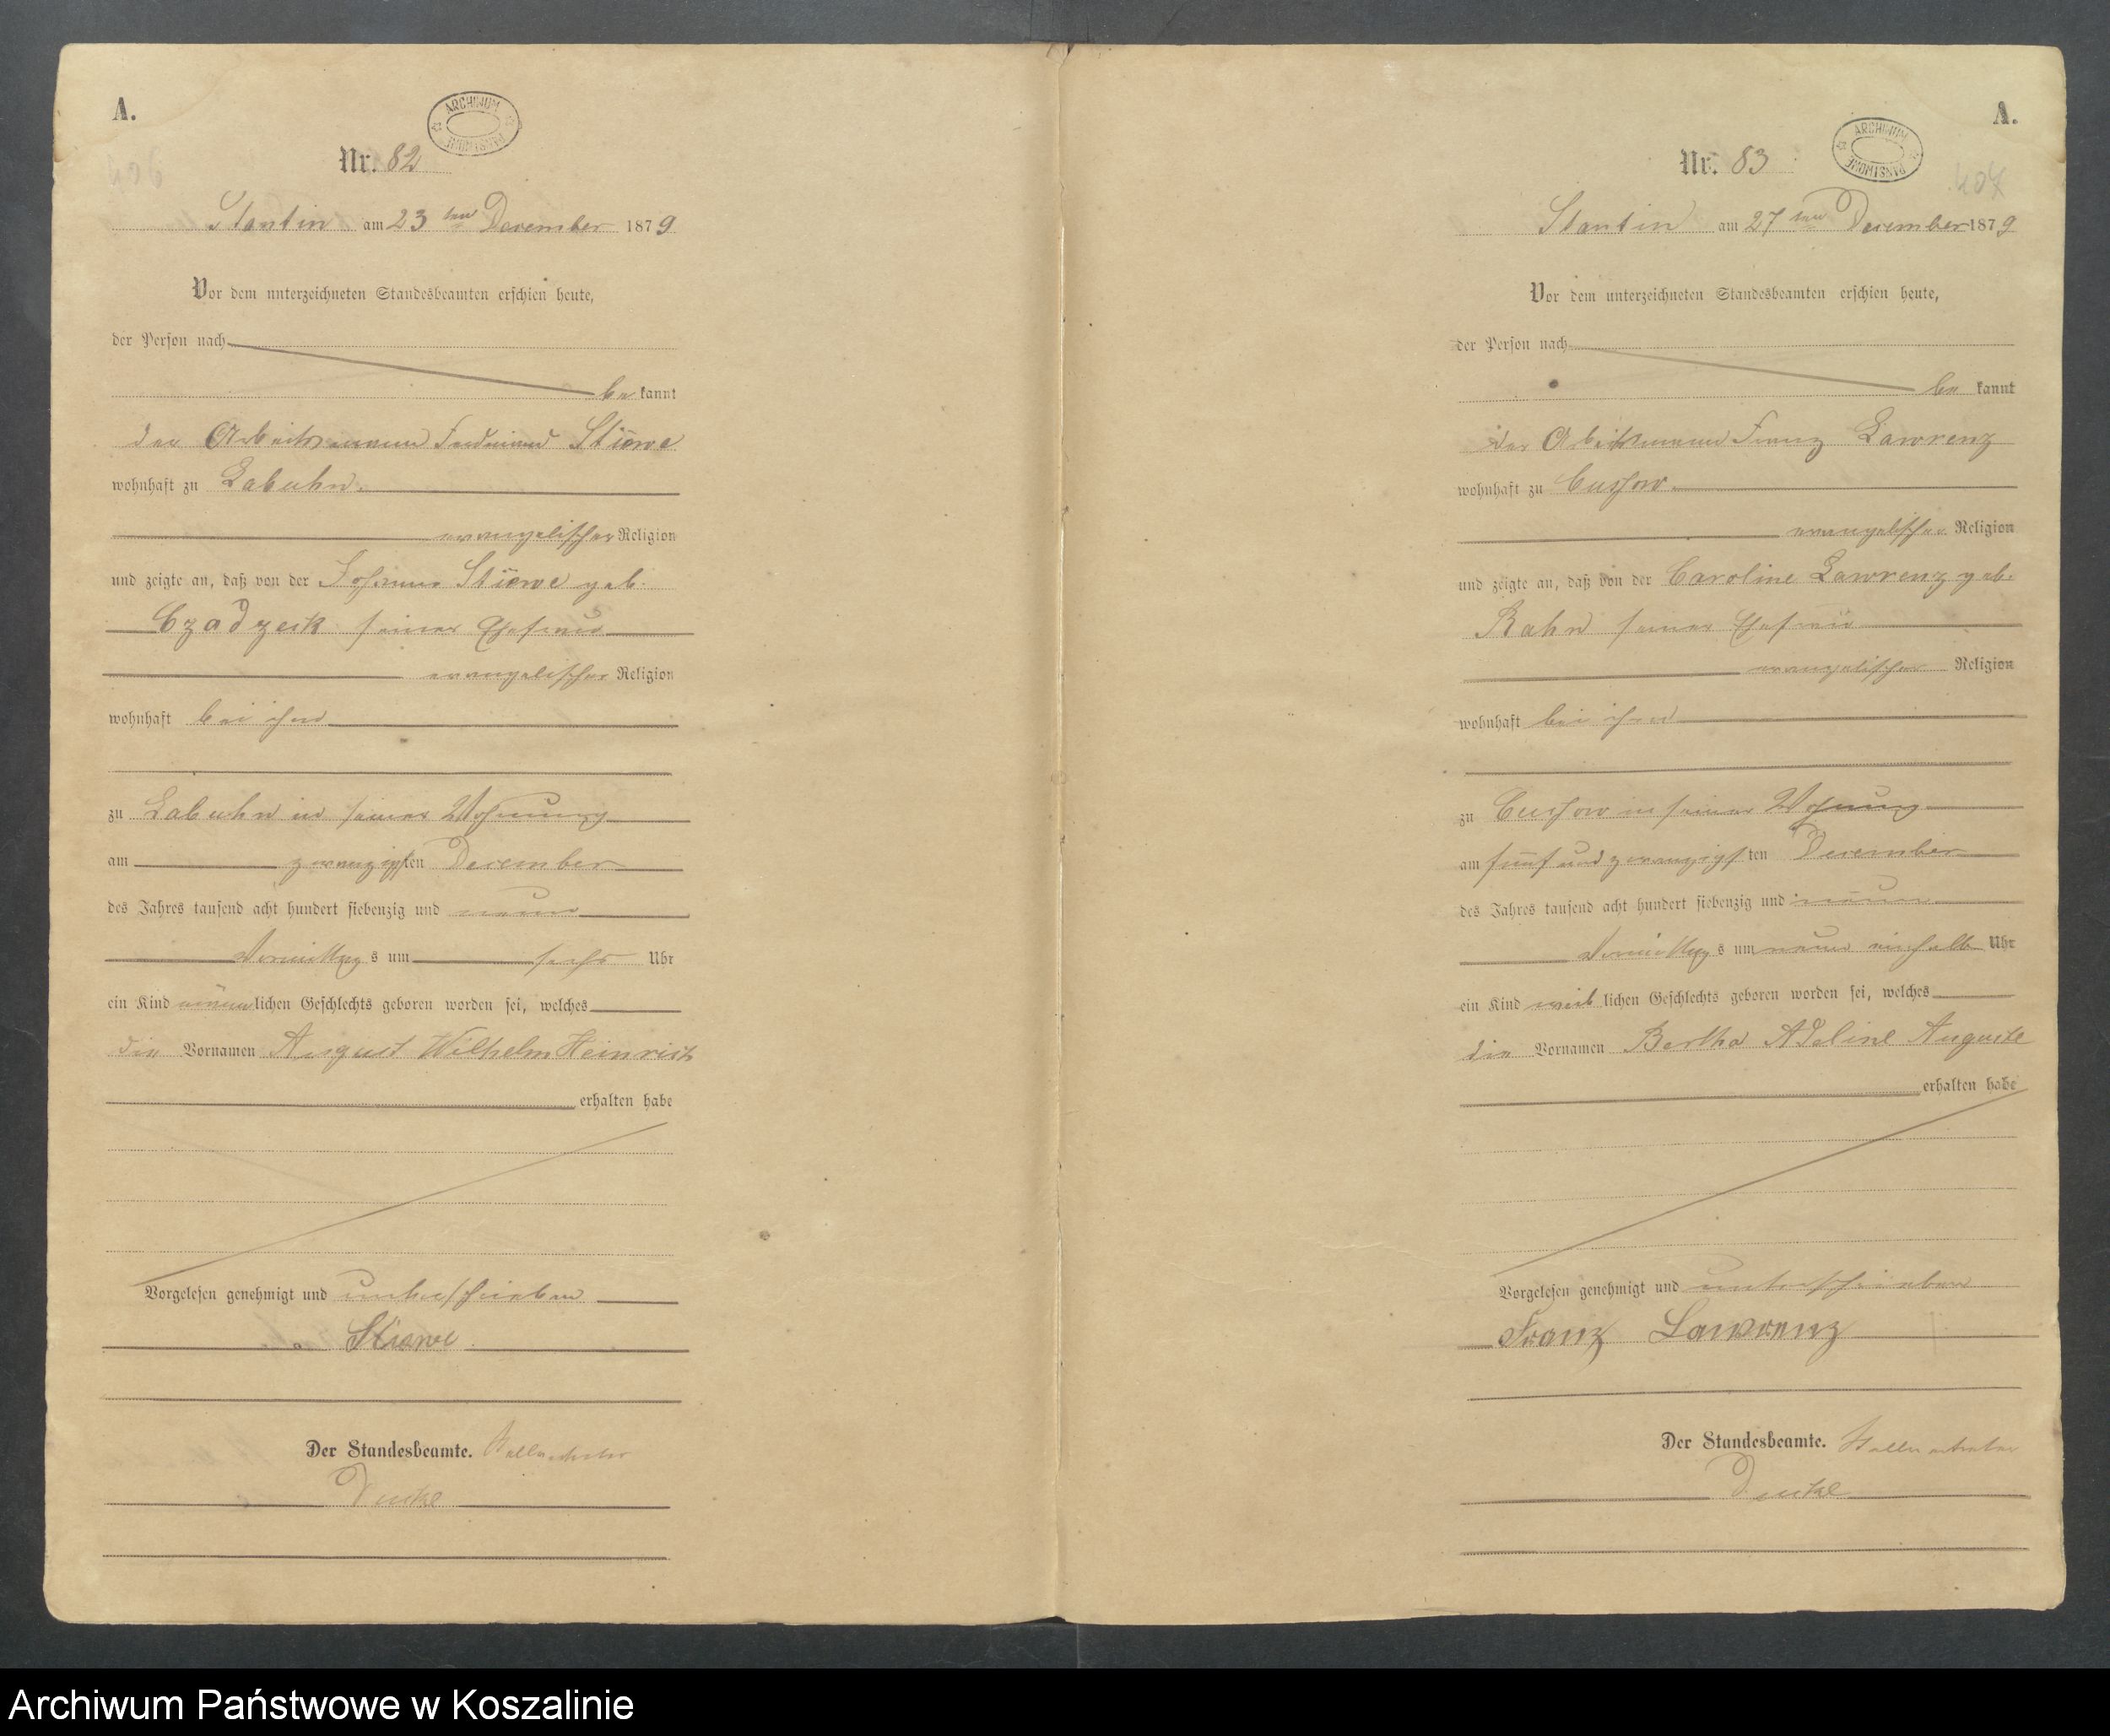 A.
ARCHIWUM PAŃSTWOWE
Nr. 82
406
Stantin am 23 ten December 1879
Vor dem unterzeichneten Standesbeamten erschien heute,
der Person nach
be kannt
der Arbeitsmann Ferdinand Stüwe
wohnhaft zu Labuhn.
evangelischer Religion
und zeigte an, daß von der Johanna Stüwe geb.
Czadzeck seiner Ehefrau
evangelischer Religion
wohnhaft bei ihm
zu Labuhn in seiner Wohnung
am zwanzigsten December
des Jahres tausend acht hundert siebenzig und neun
Vormittags um sechs Uhr
ein Kind männlichen Geschlechts geboren worden sei, welches
die Vornamen August Wilhelm Heinrich
erhalten habe
Vorgelesen genehmigt und unterschrieben
Stüwe
Der Standesbeamte.
A.
ARCHIWUM PAŃSTWOWE
Nr. 83
407
Stantin am 27 ten December 1879
Vor dem unterzeichneten Standesbeamten erschien heute,
der Person nach
be kannt
der Arbeitsmann Franz Lawrenz
wohnhaft zu Cussow
evangelischer Religion
und zeigte an, daß von der Caroline Lawrenz geb.
Rahn seiner Ehefrau
evangelischer Religion
wohnhaft bei ihm
zu Cussow in seiner Wohnung
am fünf und zwanzigsten December
des Jahres tausend acht hundert siebenzig und neun
Vormittags um neun einhalb Uhr
ein Kind weiblichen Geschlechts geboren worden sei, welches
die Vornamen Bertha Adeline Auguste
erhalten habe
Vorgelesen genehmigt und unterschrieben
Franz Lawrenz
Der Standesbeamte.
Archiwum Państwowe w Koszalinie